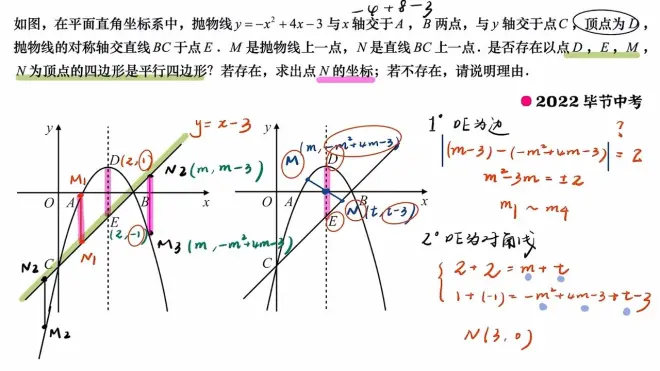 -4+8-3
如图，在平面直角坐标系中，抛物线y=-x²+4x-3与x轴交于A，B两点，与y轴交于点C，顶点为D，
抛物线的对称轴交直线BC于点E．M是抛物线上一点，N是直线BC上一点．是否存在以点D，E，M，
N为顶点的四边形是平行四边形？若存在，求出点N的坐标；若不存在，请说明理由．
2022毕节中考
y
y=x-3
D(2,1)
M₁
N₂(m,m-3)
O
A
B
x
E
(2,-1)
N₁
M₃(m,-m²+4m-3)
C
N₂
M₂
y
(m,-m²+4m-3)
M
D
O
A
B
x
N(t,t-3)
E
C
1° DE为边
?
|(m-3)-(-m²+4m-3)|=2
m²-3m=±2
m₁~m₄
2° DE为对角线
2+2=m+t
1+(-1)=-m²+4m-3+t-3
N(3,0)